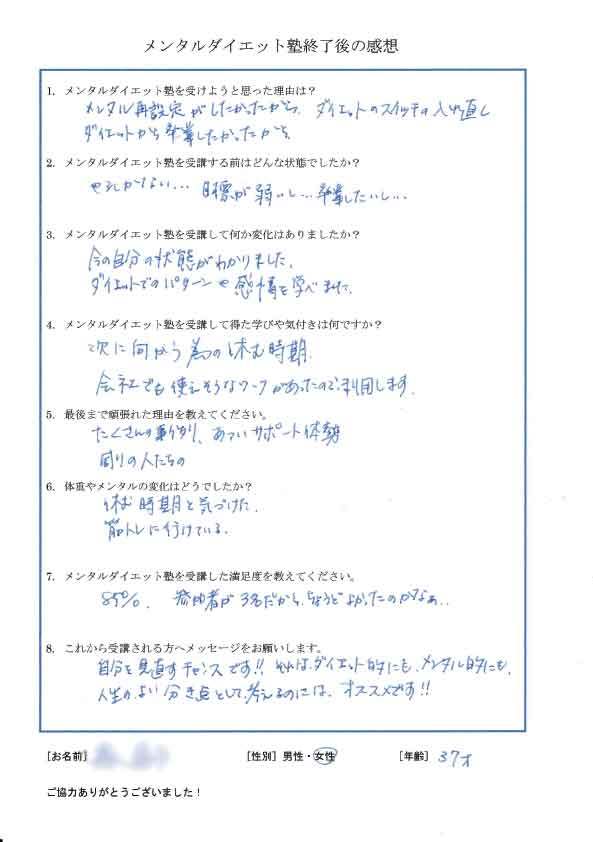 メンタルダイエット塾終了後の感想
1. メンタルダイエット塾を受けようと思った理由は？
メンタル再設定がしたかったから、ダイエットのスイッチの入れ直し
ダイエットから卒業したかったから
2. メンタルダイエット塾を受講する前はどんな状態でしたか？
やる気がない… 目標が弱いし…卒業したいし…
3. メンタルダイエット塾を受講して何か変化はありましたか？
今の自分の状態がわかりました。
ダイエットでのパターンや感情を学べました。
4. メンタルダイエット塾を受講して得た学びや気付きは何ですか？
次に向かう為の休む時期.
会社でも使えそうなワークがあったので、利用します.
5. 最後まで頑張れた理由を教えてください。
たくさんの あついサポート体勢
周りの人たちの
6. 体重やメンタルの変化はどうでしたか？
休む時期と気づけた.
筋トレに行けている.
7. メンタルダイエット塾を受講した満足度を教えてください。
85%. 参加者が3名だから、ちょうどよかったのかなぁ..
8. これから受講される方へメッセージをお願いします。
自分を見直すチャンスです!! それは、ダイエット的にも、メンタル的にも、
人生の、よい分き点として、考えるのには、オススメです!!
［お名前］ ［性別］男性・女性 ［年齢］37才
ご協力ありがとうございました！